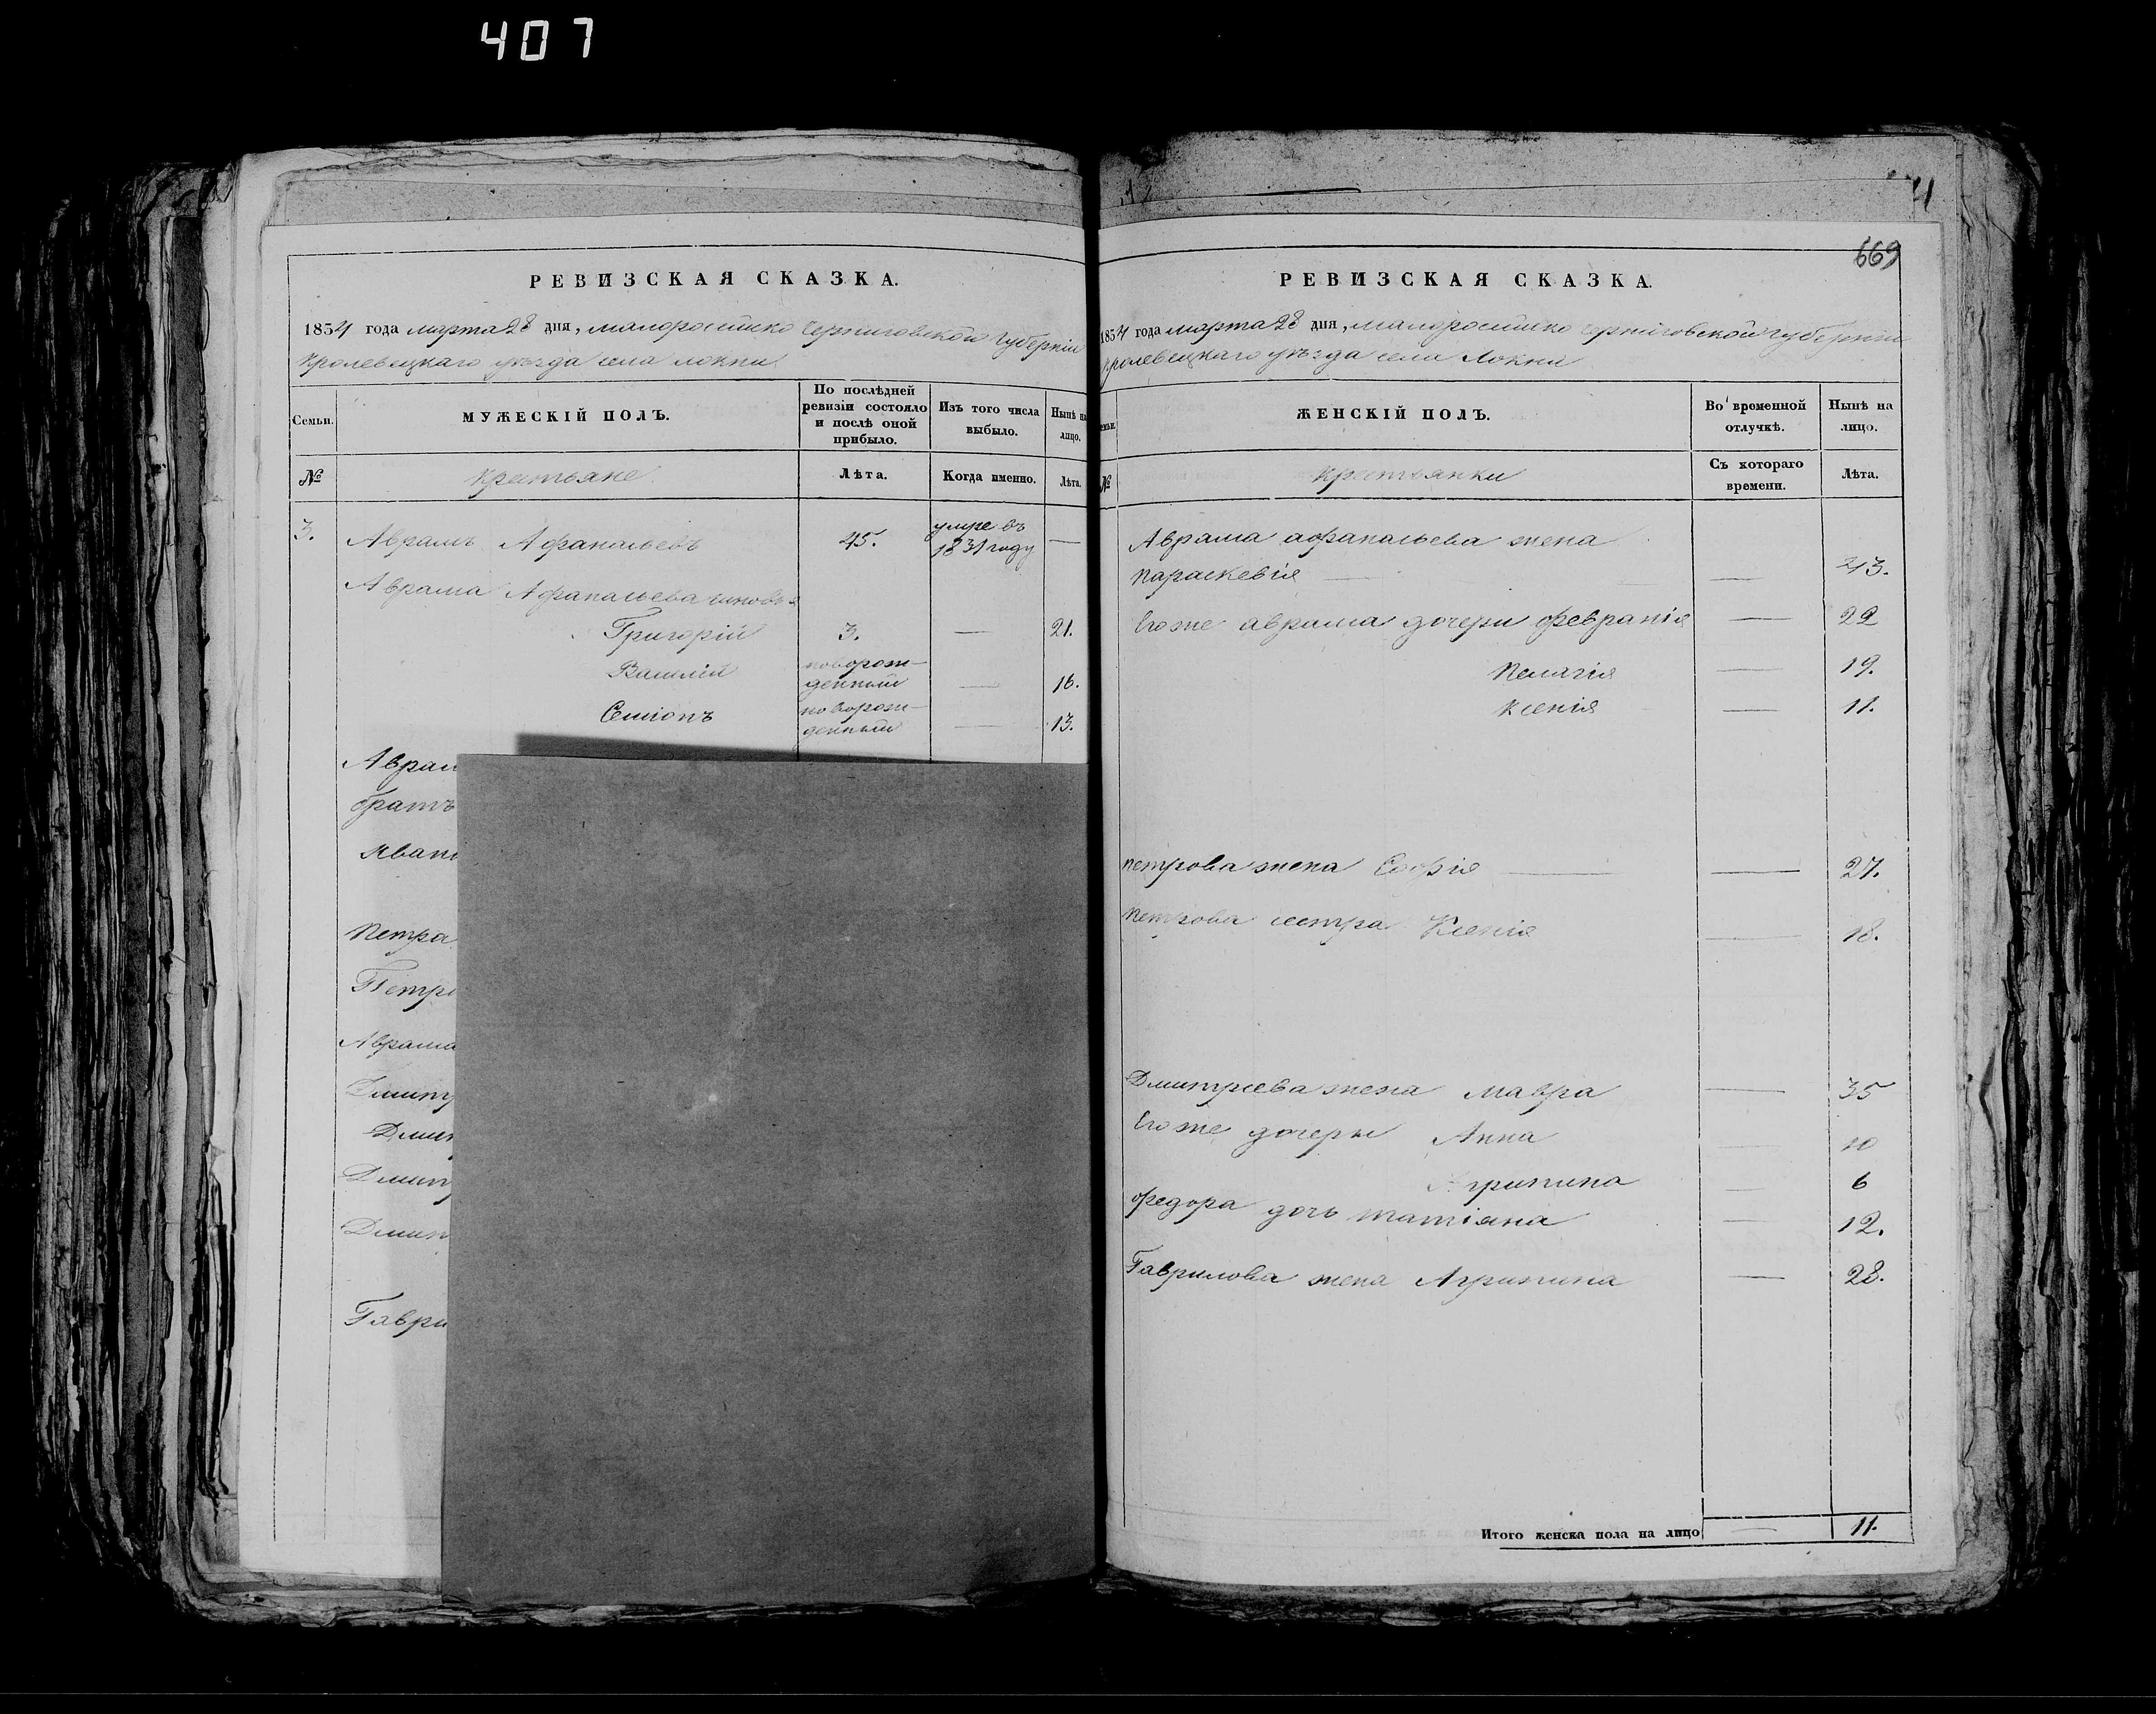 407
РЕВИЗСКАЯ СКАЗКА.
1854 года марта 28 дня, малоросійско Черниговской губерніи
Кролевецкаго уѣзда села Локни
Семьи.
МУЖЕСКІЙ ПОЛЪ.
По послѣдней ревизіи состояло и послѣ оной прибыло.
Изъ того числа выбыло.
Нынѣ на лицо.
№
крестьяне
Лѣта.
Когда именно.
Лѣта.
3. Аврамъ Афанасьевъ 45. умре въ 1831 году —
Аврама Афанасьева сыновья
Григорій 3. — 21.
Василій новорожденный — 16.
Семіонъ новорожденный — 13.
Аврам
братъ
Петра
Петр
Аврама
Дмит
Дми
Дмит
Дмит
Гаври
4
669
РЕВИЗСКАЯ СКАЗКА.
1854 года марта 28 дня, малоросійско Черніговской губерніи
кролевецкаго уѣзда села Локни
ЖЕНСКІЙ ПОЛЪ.
Во временной отлучкѣ.
Нынѣ на лицо.
№
крестьянки
Съ котораго времени.
Лѣта.
Аврама афанасьева жена
Параскевія — — 43.
Егоже аврама дочери февранія — 22
Пелагія — 19.
Ксенія — 11.
петрова жена Софія — — 27.
Петрова сестра Ксенія — 18.
Дмитріева жена Мавра — 35
Егоже дочери Анна — 10
Агрипина — 6
Федора дочь татіяна — 12.
Гаврилова жена Агрипина — 28.
Итого женска пола на лицо — 11.